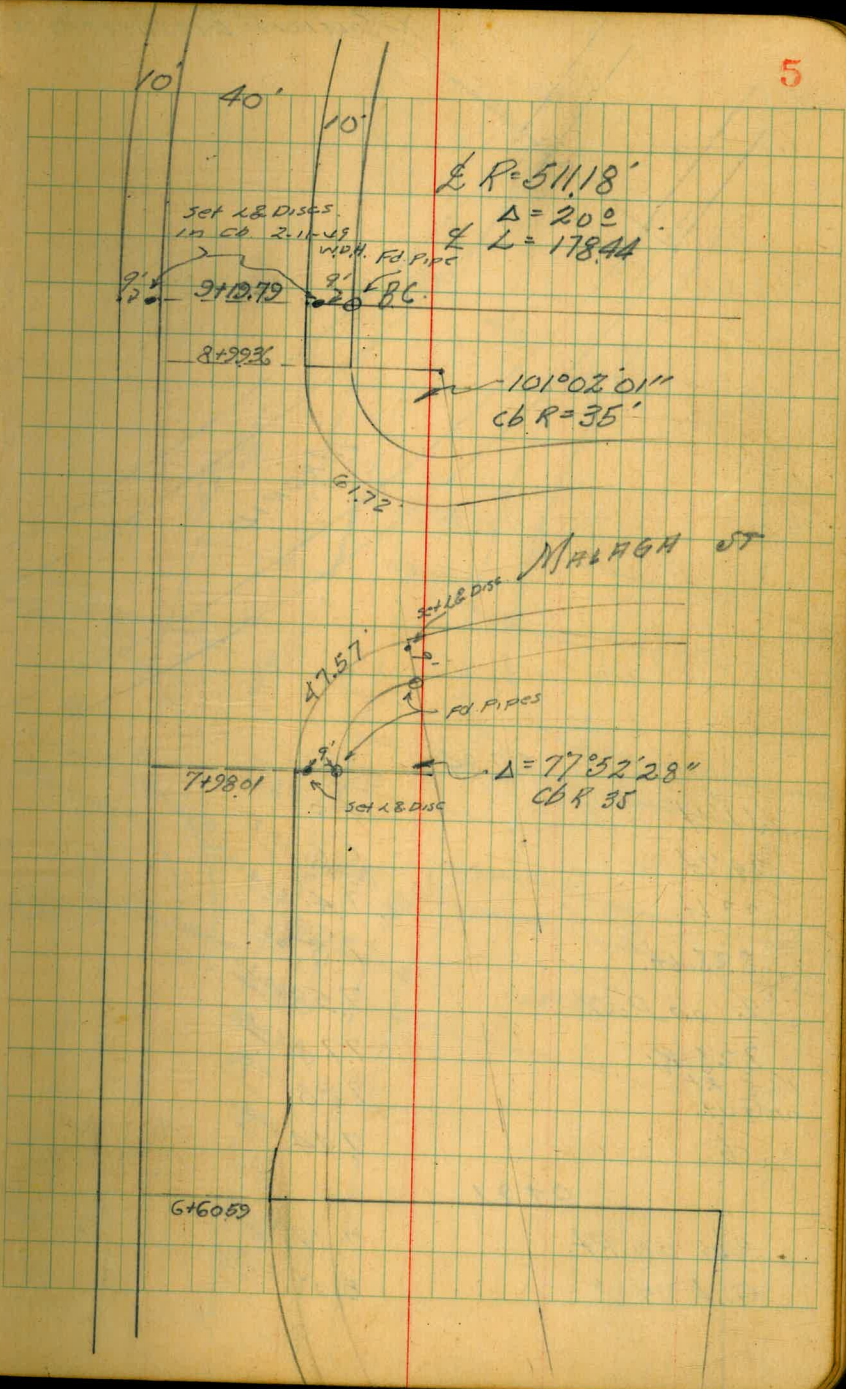 5
10'
40'
10'
℄ R=511.18'
Δ = 20°
℄ L = 178.44
Set L&Discs
in cb. 2-11-49
W.D.H.
Fd. Pipe
9'
9+19.79
9'
B.C.
8+99.36
101°02'01"
cb R=35'
61.72
MALAGA ST
Set L&Disc
47.57'
9'
Fd. Pipes
9'
7+98.01
Δ = 77°52'28"
Cb R 35
Set L&Disc
6+60.59